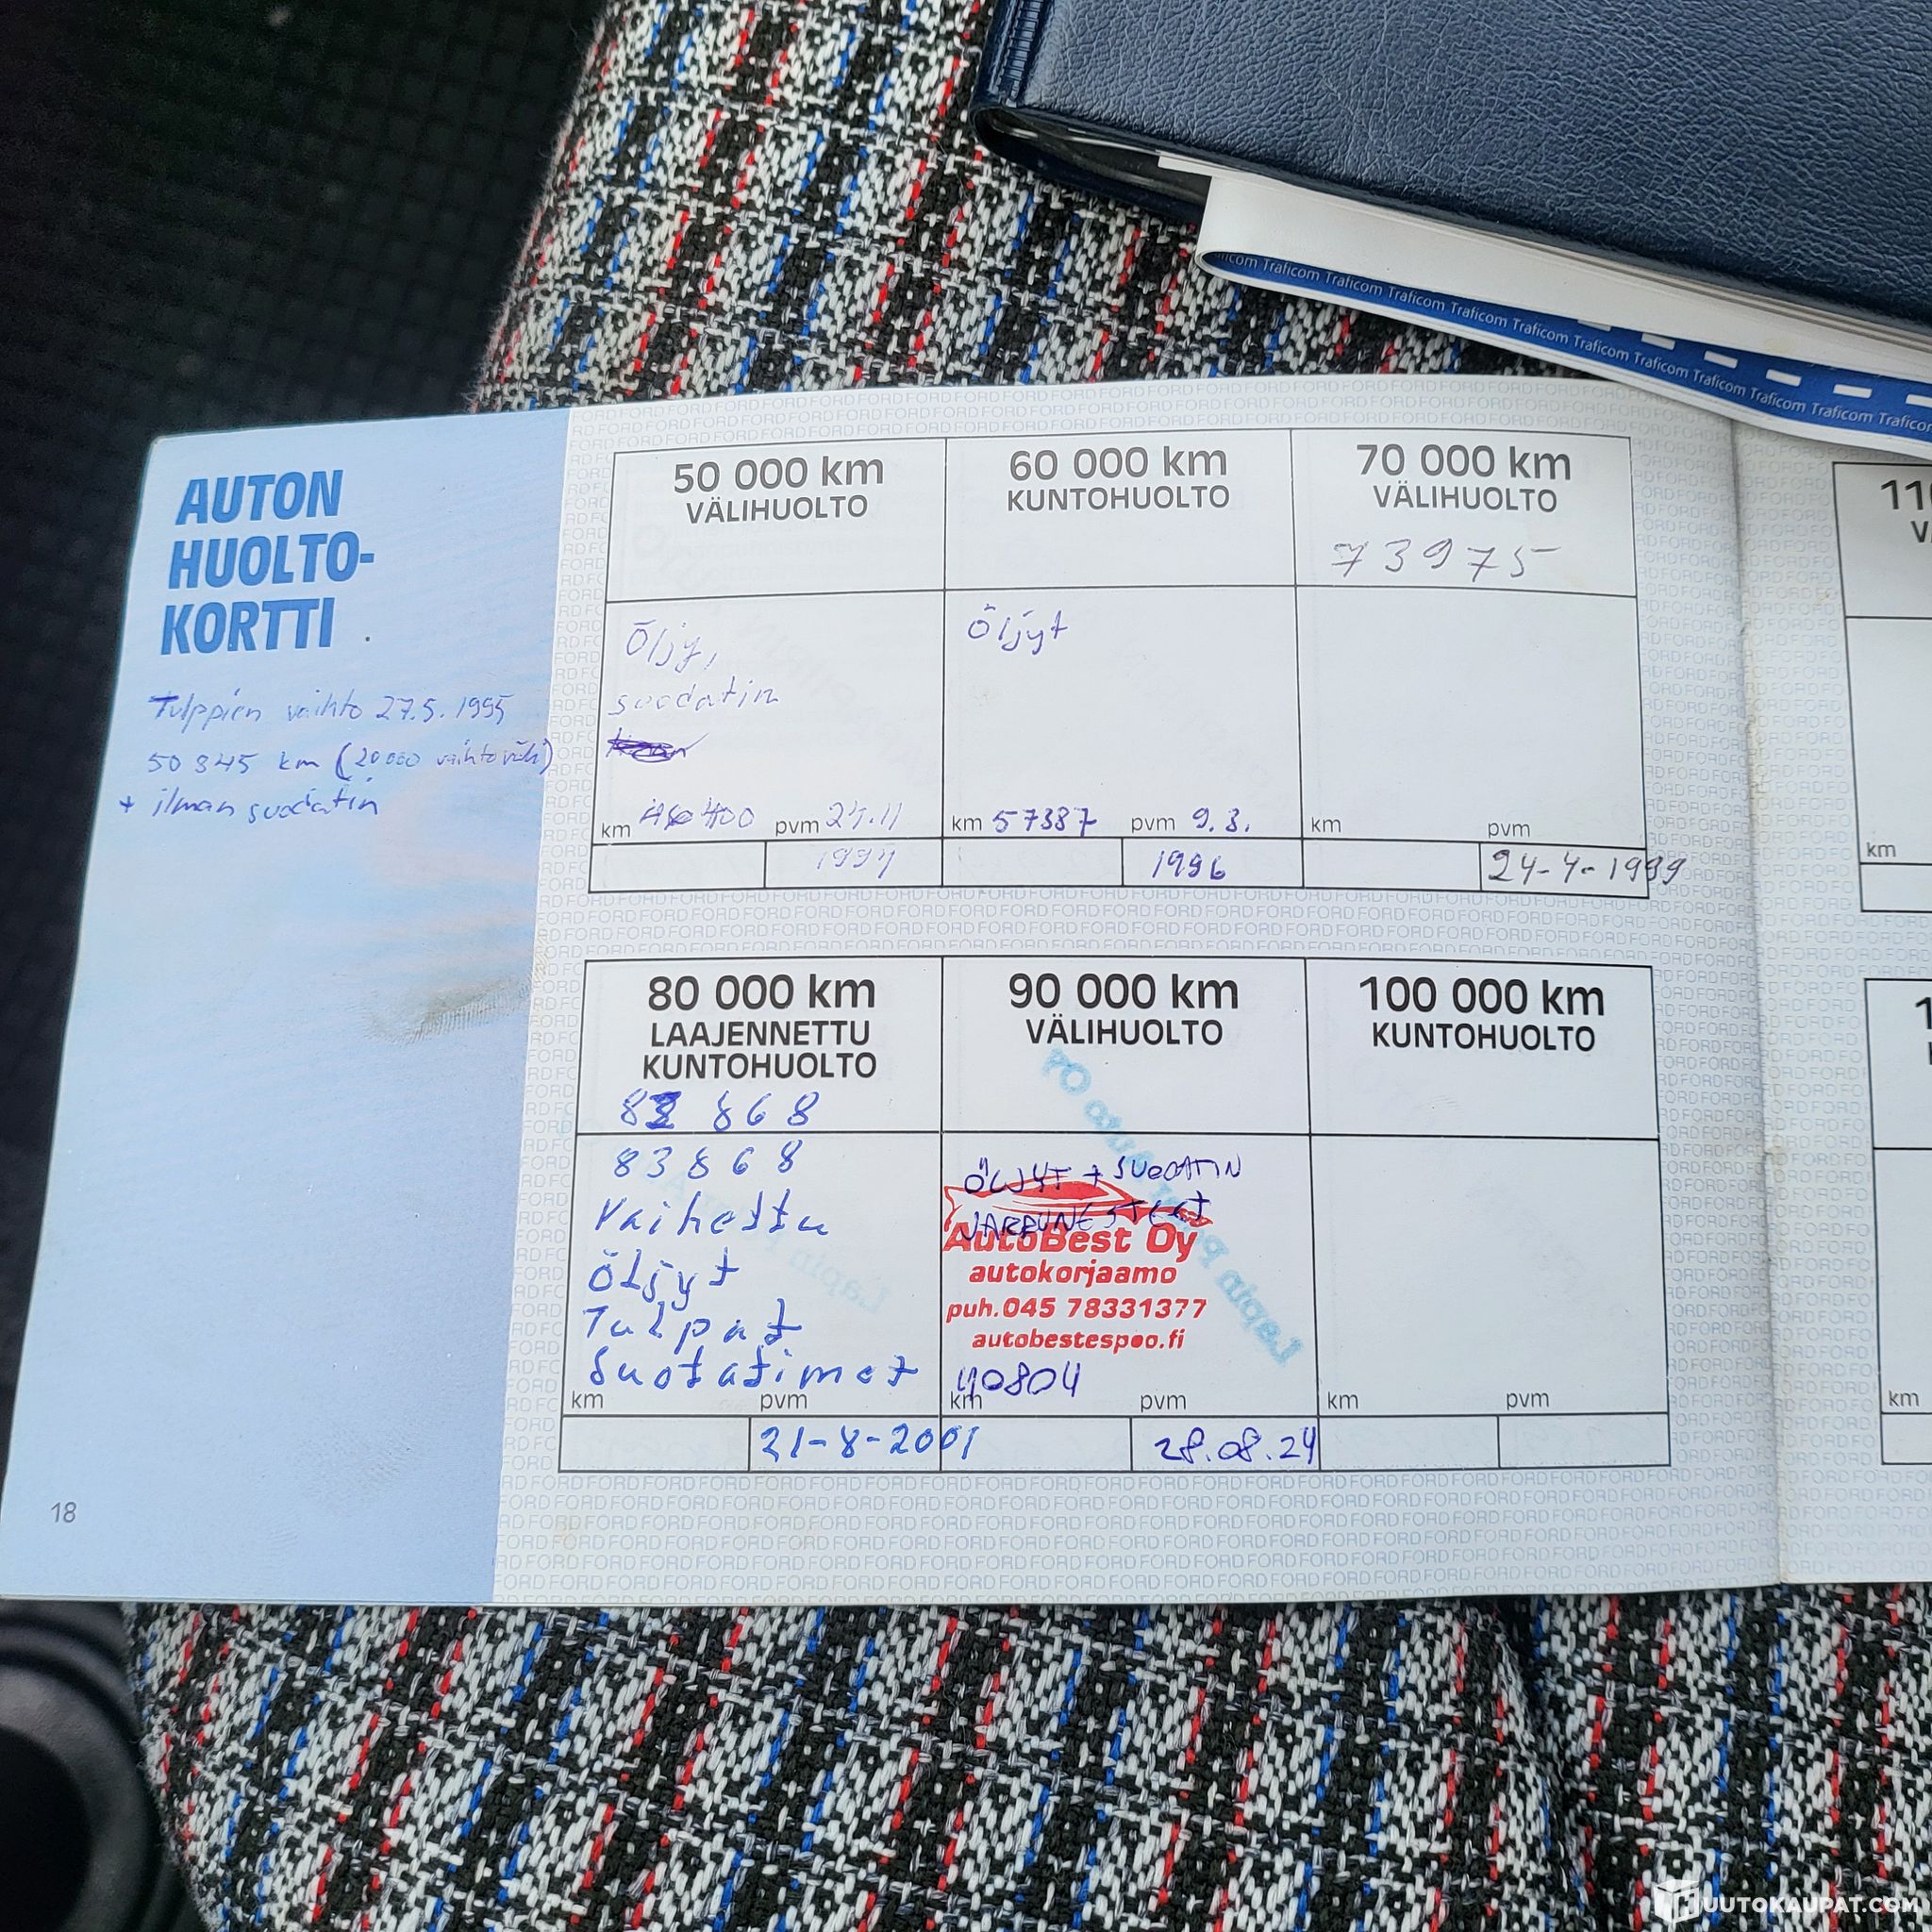 Traficom Traficom Traficom Traficom Traficom Traficom Traficom Traficom
AUTON
HUOLTO-
KORTTI
Tulppien vaihto 27.5.1995
50 345 km (20 000 vaihtoväli)
+ ilman suodatin
18
50 000 km
VÄLIHUOLTO
Öljy,
suodatin
400
km pvm 24.11
1994
60 000 km
KUNTOHUOLTO
Öljyt
km 57387 pvm 9.3.
1996
70 000 km
VÄLIHUOLTO
73975
km pvm
24-4-1999
80 000 km
LAAJENNETTU
KUNTOHUOLTO
868
83868
Vaihettu
Öljyt
Tulpat
Suotatimet
km pvm
21-8-2001
90 000 km
VÄLIHUOLTO
ÖLJYT + SUODATIN
JARRUNESTEET
AutoBest Oy
autokorjaamo
puh.045 78331377
autobestespoo.fi
90804
km pvm
28.08.24
100 000 km
KUNTOHUOLTO
km pvm
km
km
FORDFORDFORDFORDFORD
UUTOKAUPAT.COM